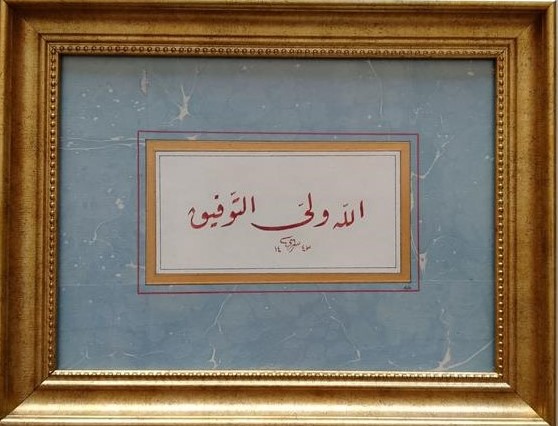 الله ولى التوفيق
١٤ ٤٣